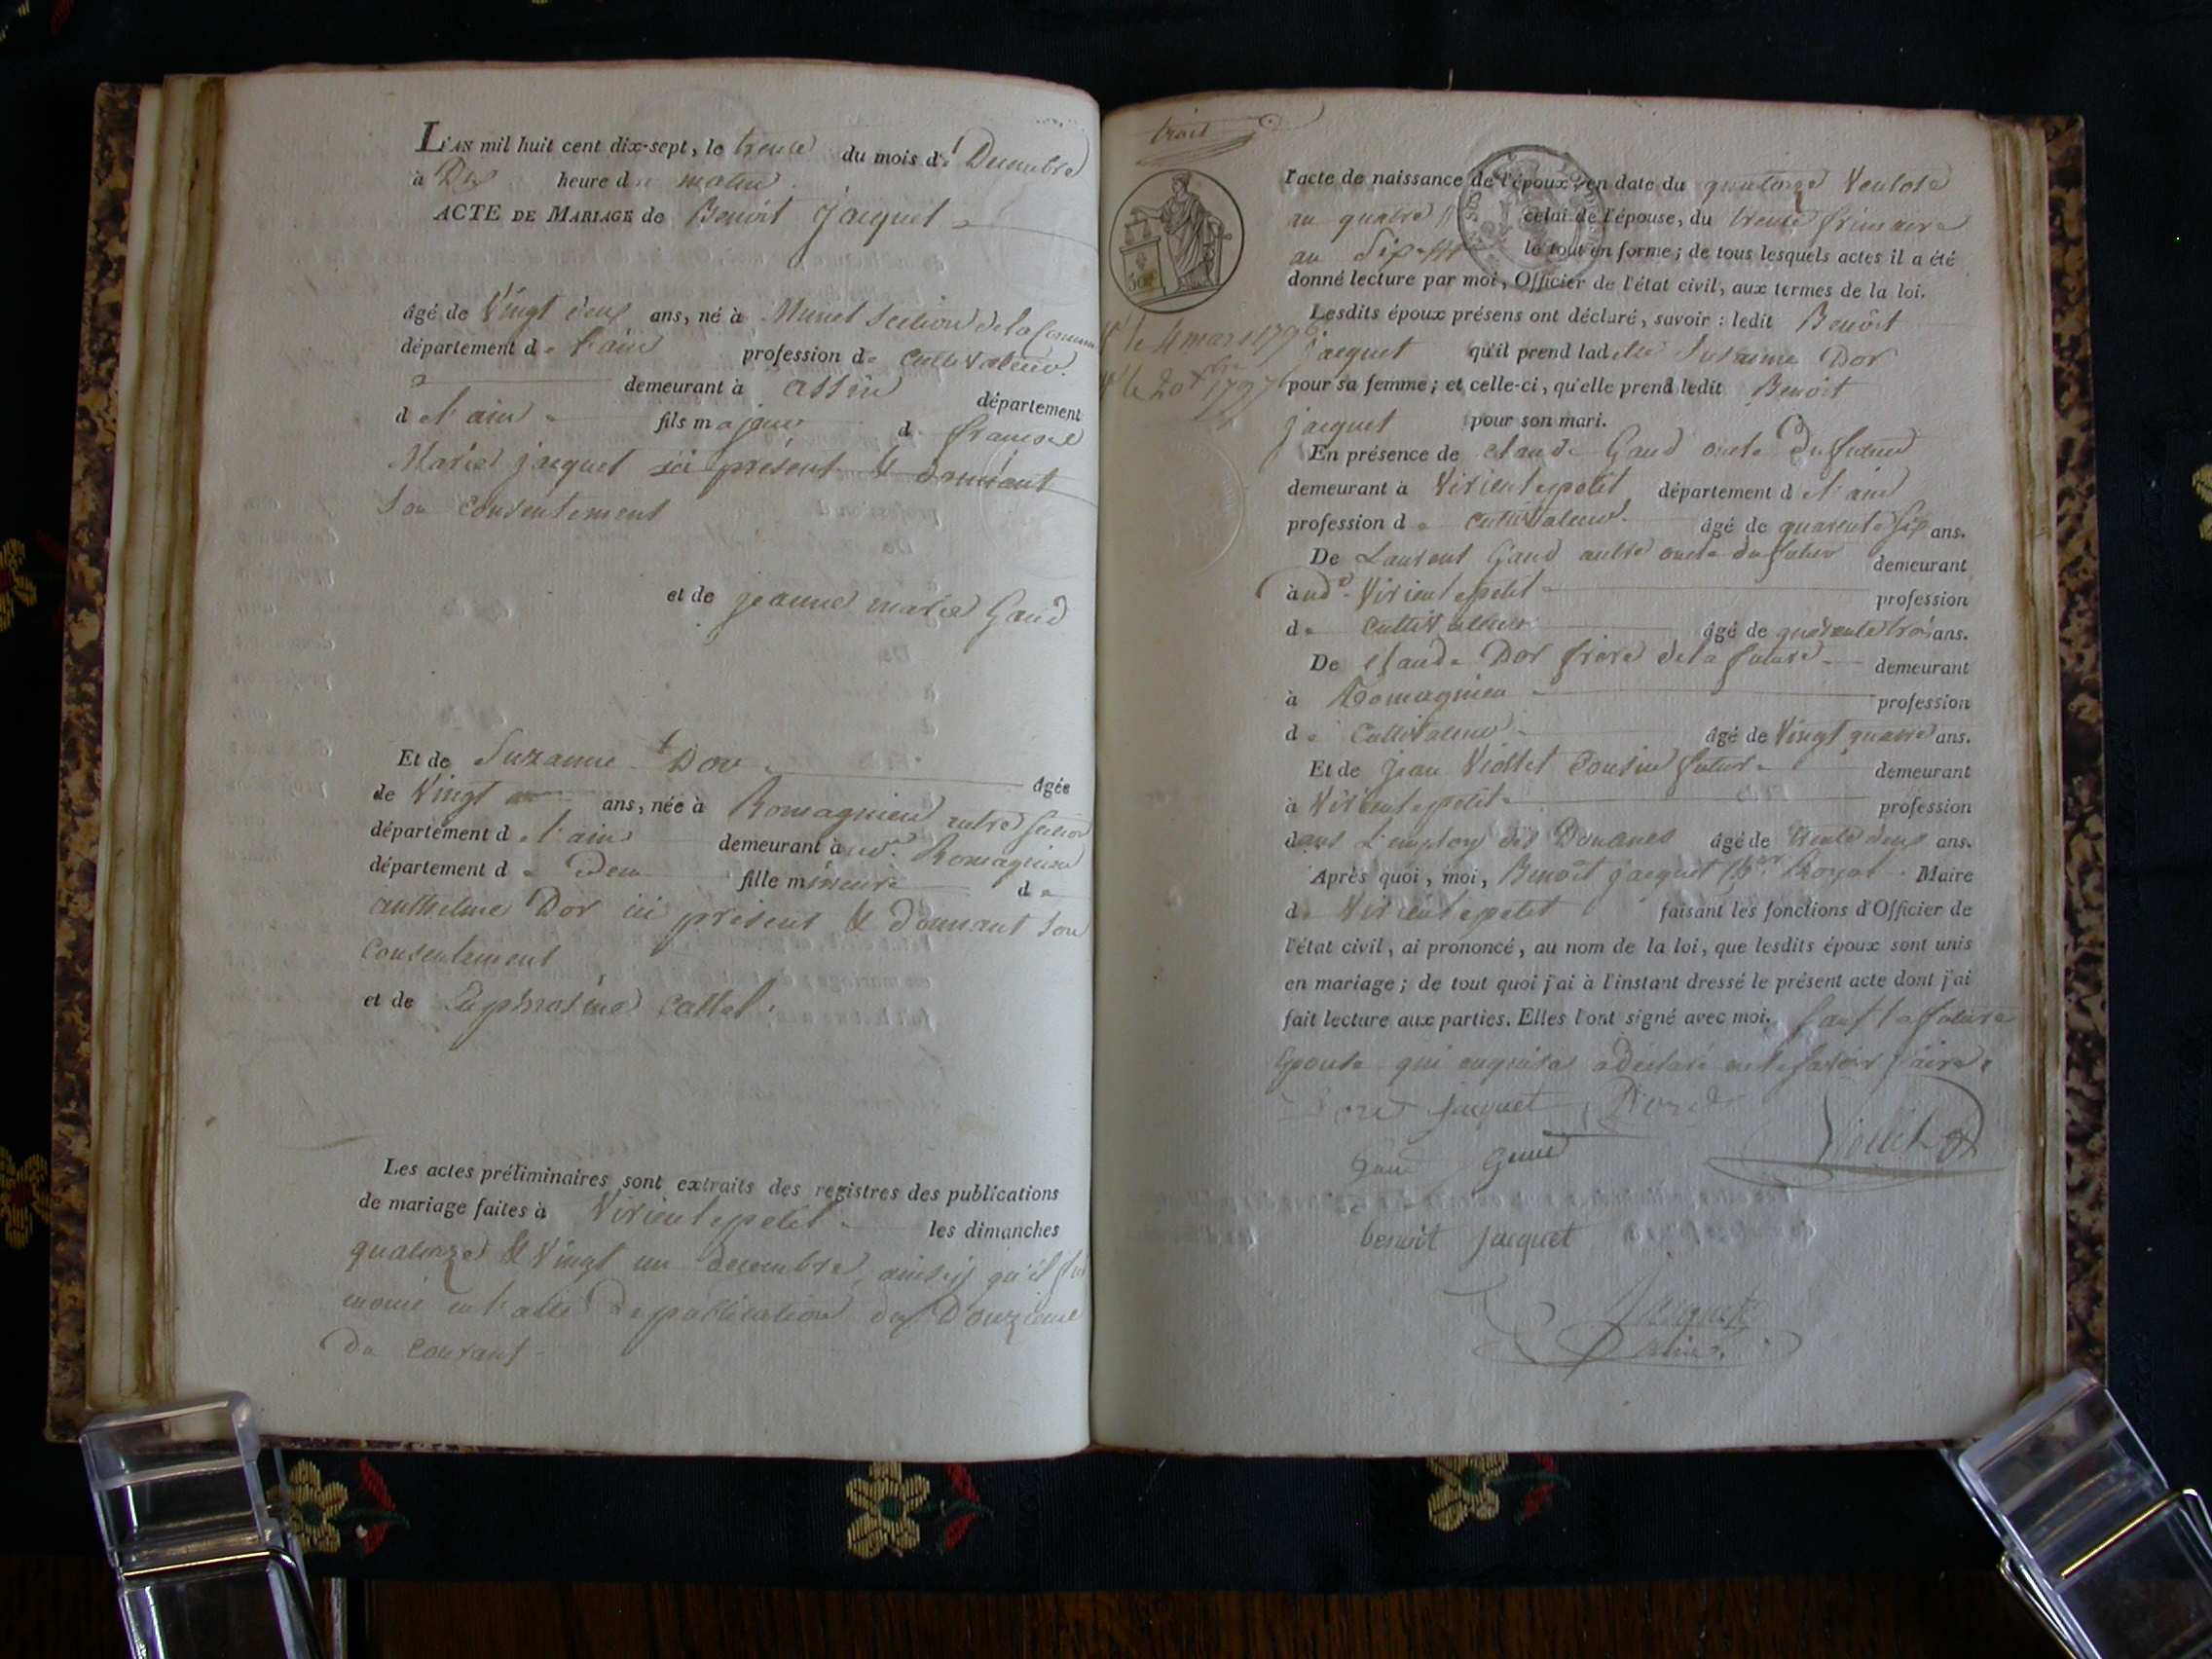 L'AN mil huit cent dix-sept, le trente du mois de Decembre
à Dix heure du matin
ACTE DE MARIAGE de Benoit jacquet
âgé de Vingt deux ans, né à Munet Section de la Commune
département de l'ain profession de Cultivateur.
demeurant à assin département
de l'ain fils majeur de francois
Marie jacquet ici présent & donnant
Son Consentement
et de jeanne marie Gaud
Et de Suzanne Dor âgée
de Vingt ans, née à Romagnieu autre Section
département de l'ain demeurant à Romagnieu
département de fille mineure de
anthelme Dor ici présent & donnant Son
Consentement
et de Euphrosine Cattel
Les actes préliminaires sont extraits des registres des publications
de mariage faites à Virieu le petit les dimanches
quatorze & Vingt un decembre, ainsy qu'il
en l'acte de publication du Douzieme
Du Courant
l'acte de naissance de l'époux, en date du quatorze Ventose
an quatre celui de l'épouse, du trente frimaire
an Six le tout en forme; de tous lesquels actes il a été
donné lecture par moi, Officier de l'état civil, aux termes de la loi.
Lesdits époux présens ont déclaré, savoir : ledit Benoit
le 4 mars 1796
jacquet qu'il prend ladite Suzanne Dor
le 20 Xbre 1797
pour sa femme; et celle-ci, qu'elle prend ledit Benoit
jacquet pour son mari.
En présence de Claude Gaud oncle Du futur
demeurant à Virieu le petit département de l'ain
profession de Cultivateur âgé de quarente Six ans.
De Laurent Gaud autre oncle du futur demeurant
à Virieu le petit profession
de Cultivateur âgé de quarente trois ans.
De Claude Dor frere de la future demeurant
à Romagnieu profession
de Cultivateur âgé de Vingt quatre ans.
Et de jean Viollet Cousin futur demeurant
à Virieu le petit profession
dans l'employ des Douanes âgé de trente deux ans.
Après quoi, moi, Benoit jacquet Maire
de Virieu le petit faisant les fonctions d'Officier de
l'état civil, ai prononcé, au nom de la loi, que lesdits époux sont unis
en mariage; de tout quoi j'ai à l'instant dressé le présent acte dont j'ai
fait lecture aux parties. Elles l'ont signé avec moi. Sauf la future
Epouse qui enquise a déclaré ne le Savoir faire.
jacquet
Gaud Gaud Viollet
benoit jacquet
Jacquet